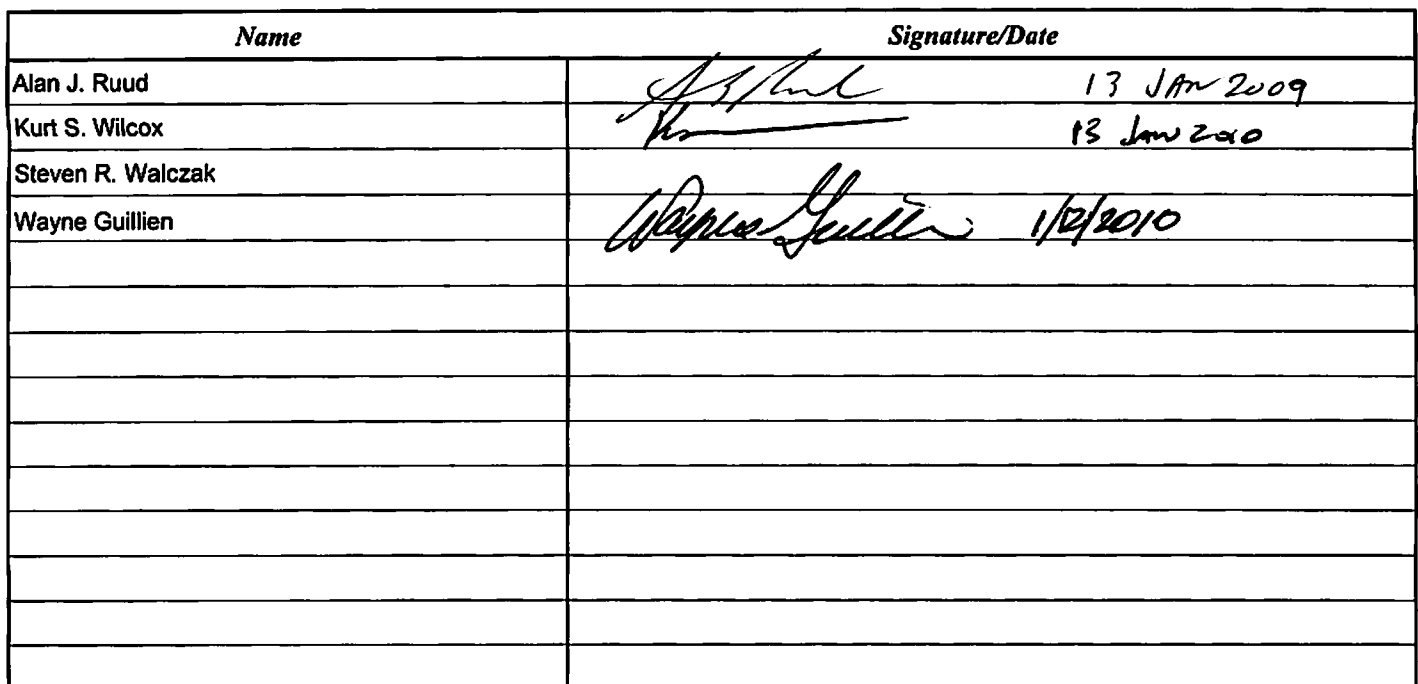 Name Signature/Date
Alan J. Ruud 13 JAN 2009
Kurt S. Wilcox 13 JAN 2010
Steven R. Walczak
Wayne Guillien Wayne Guillien 1/12/2010